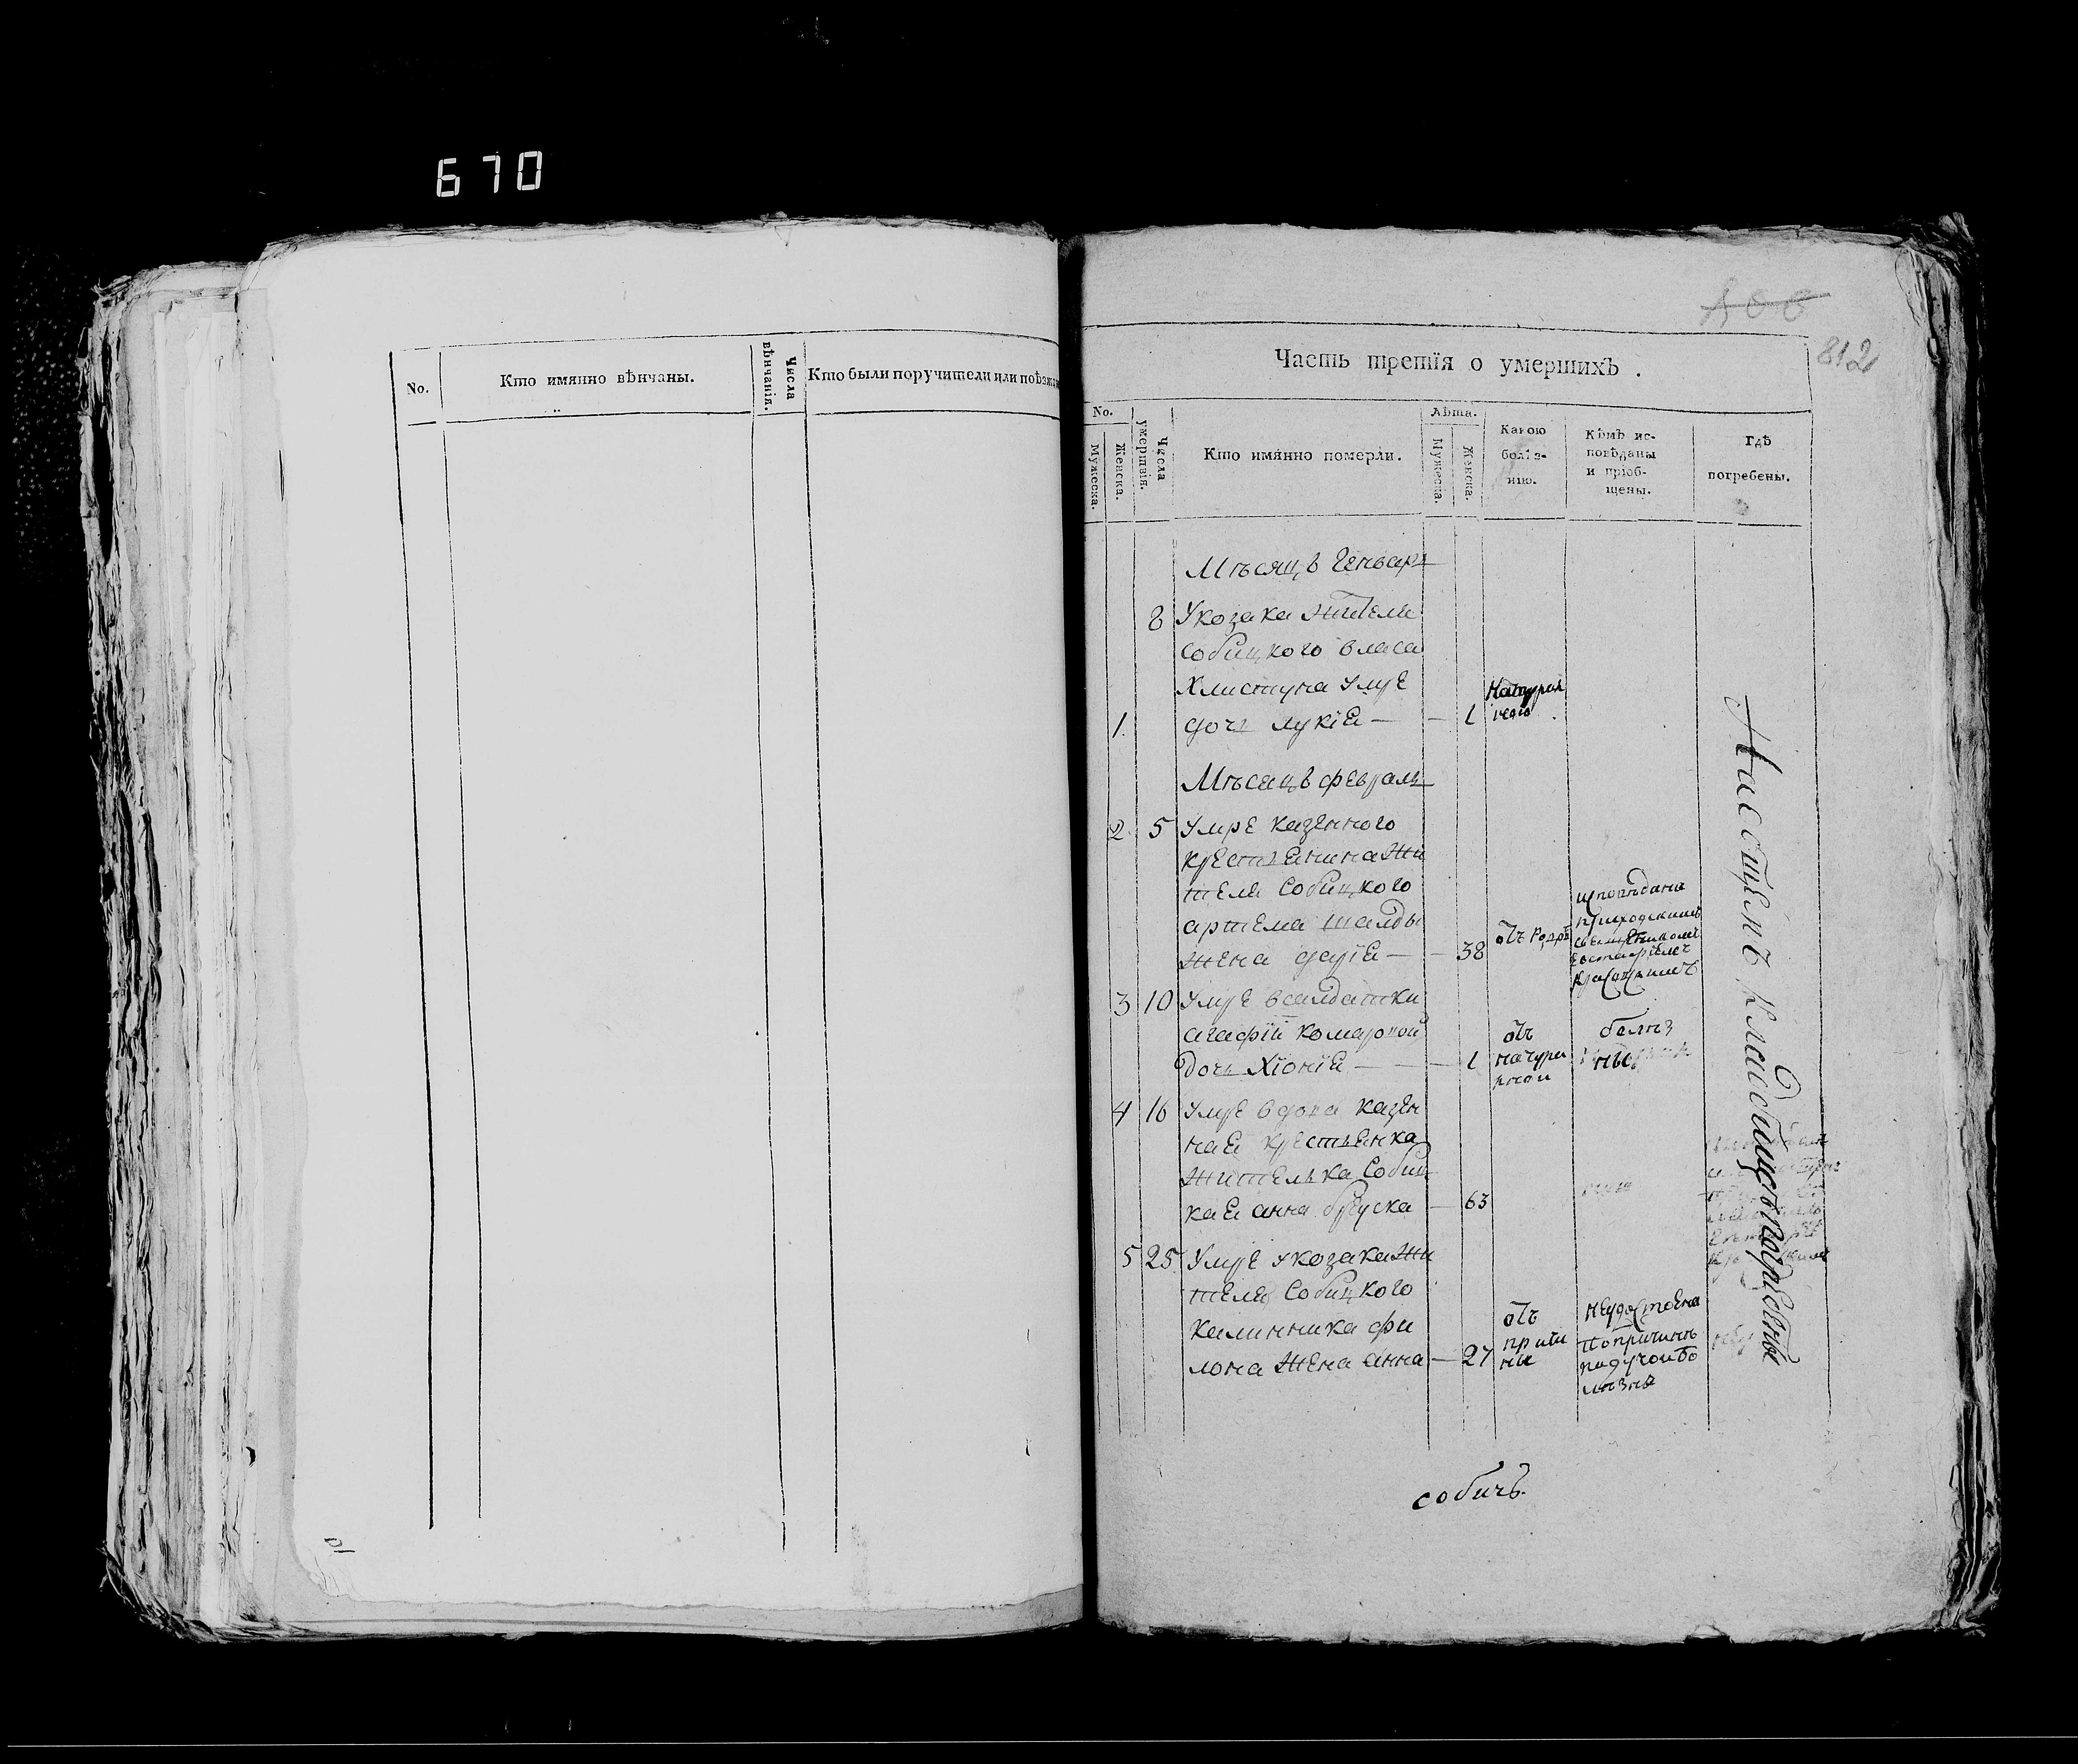 670
No.
Кто имянно вѣнчаны.
Числа вѣнчанія.
Кто были поручители или поѣзжан
812
Часть третїя о умершихъ .
No.
Мужеска.
Женска.
Числа умертвія.
Кто имянно померли.
Лѣта.
Мужеска.
Женска.
Какою болѣз-нію.
Кѣмъ ис-
повѣданы
и пріоб-
щены.
Гдѣ
погребены.
Мѣсяцъ Генварь
8 Укозака жителя
Собицкого Власа
Хлистуна умре
1. дочь Лукїя — — 1
Мѣсяцъ февраль
2 5 Умре казенного
крестьянина жи
теля Собицкого
Артема Шалды
жена Дарїя — — 38 отъ родѣ
исповѣдана
приходскимъ
священикомъ
Евстафїемъ
3 10 Умре всалдатки
Агафїи Комарной
дочь Хїонїя — — 1 отъ
4 16 Умре вдова казен
ная крестьянка
жителька Собиц
кая Анна Бруска — 63
5 25 Умре укозака жи
теля Собицкого
Калинника Фи
лона жена Анна — 27
отъ
причи
ны
неудостоена
попричинѣ
падучой бо
лѣзнѣ
собичь.